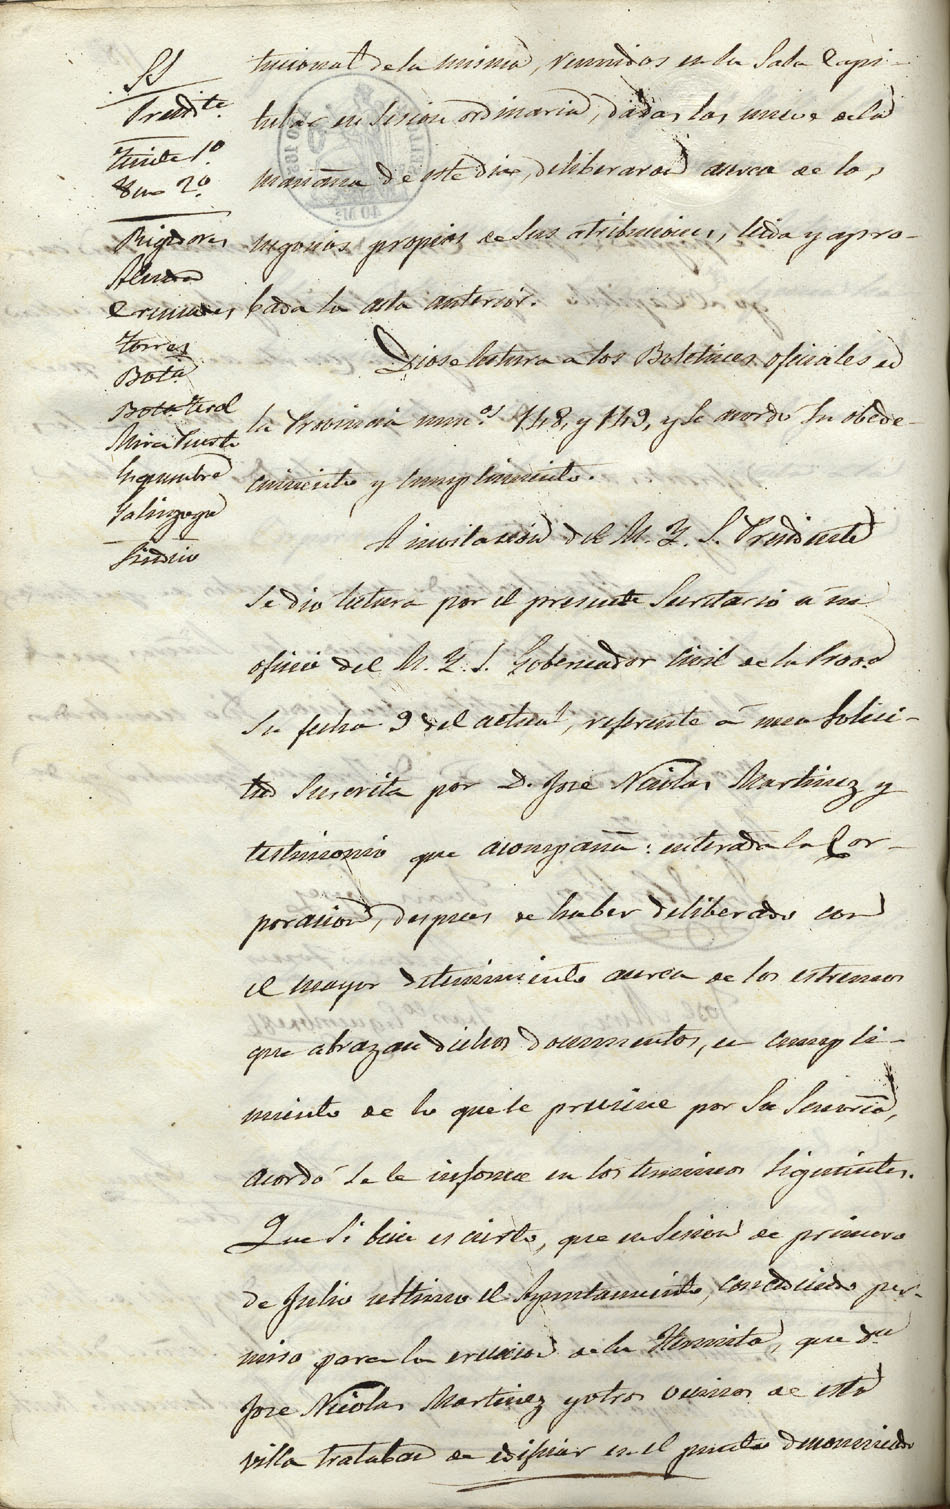 SS
Presidte
Tente 1º
Idem 2º
Regidores
Torres
Botª
Mira Puerto
Salinzoga
Sindico
tucional de la misma, reunidos en la Sala Capi-
tular en sesion ordinaria, dadas las nueve de la
mañana de este dia, deliberaron acerca de los
negocios propios de sus atribuciones, leida y apro-
bada la acta anterior.
Diose lectura a los Boletines oficiales de
la Provincia numos 148, y 149, y se acordo su obede-
cimiento y cumplimiento.
A invitacion del M. Y. S. Presidente
se dio lectura por el presente Secretario á un
oficio del M. Y. S. Gobernador Civil de la Prova
su fecha 9 del actual, referente á una solici-
tud suscrita por D. Jose Nicolas Martinez y
testimonio que acompaña: enterada la Cor-
poracion, despues de haber deliberado con
el mayor detenimiento acerca de los estremos
que abrazan dichos documentos, en cumpli-
miento de lo que se previene por Su Señoria,
acordó se le informe en los terminos siguientes.
Que si bien es cierto, que en sesion de primero
de Julio ultimo el Ayuntamiento, concediendo per-
miso para la ereccion de la Hermita, que Dn
Jose Nicolas Martinez y otros vecinos de esta
villa trataban de edificar en el punto denominado